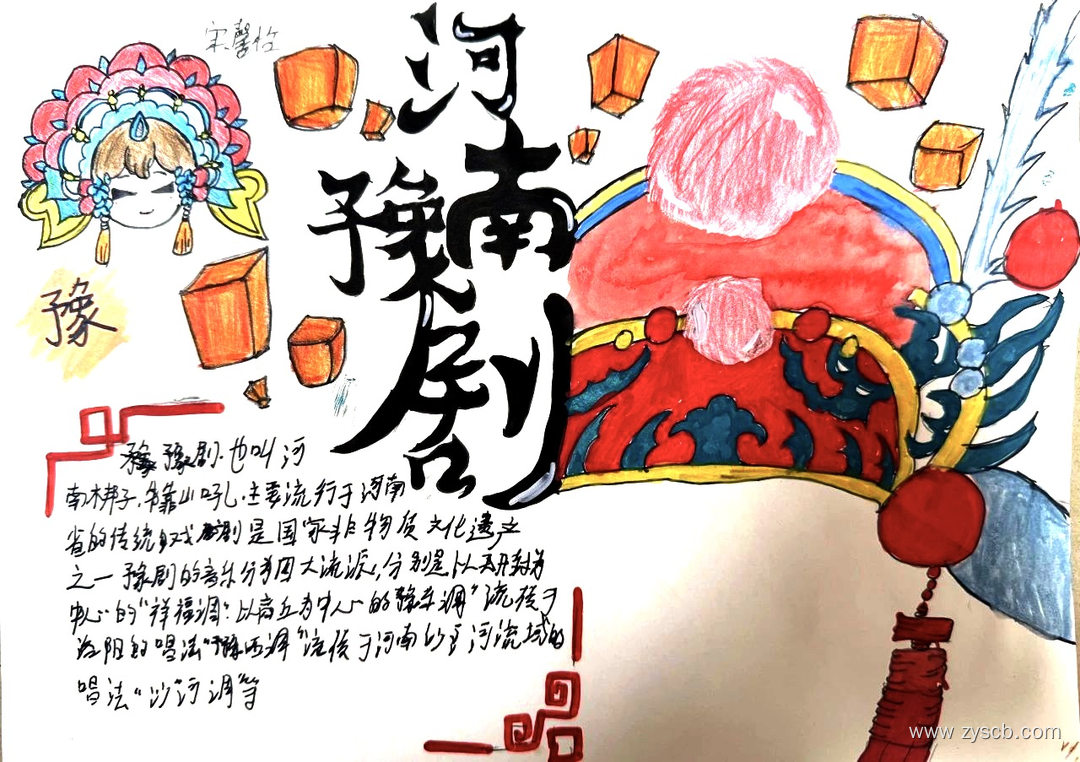 宋馨
河南
豫剧
豫
豫剧.也叫河
南梆子.靠山吼.主要流行于河南
省的传统戏剧是国家非物质文化遗产
之一豫剧的音乐分为四大流派,分别是以开封为
中心的"祥福调".以商丘为中心的豫东调"流传于
洛阳的唱法"豫西调"流传于河南的河流域的
唱法"沙河调等
www.zyscb.com